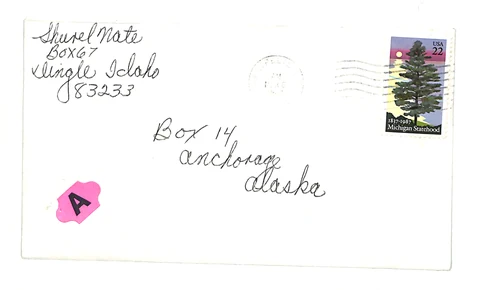 Shurel Nate
Box 67
Dingle Idaho
83233
USA
22
1837-1987
Michigan Statehood
Box 14
Anchorage
Alaska
A